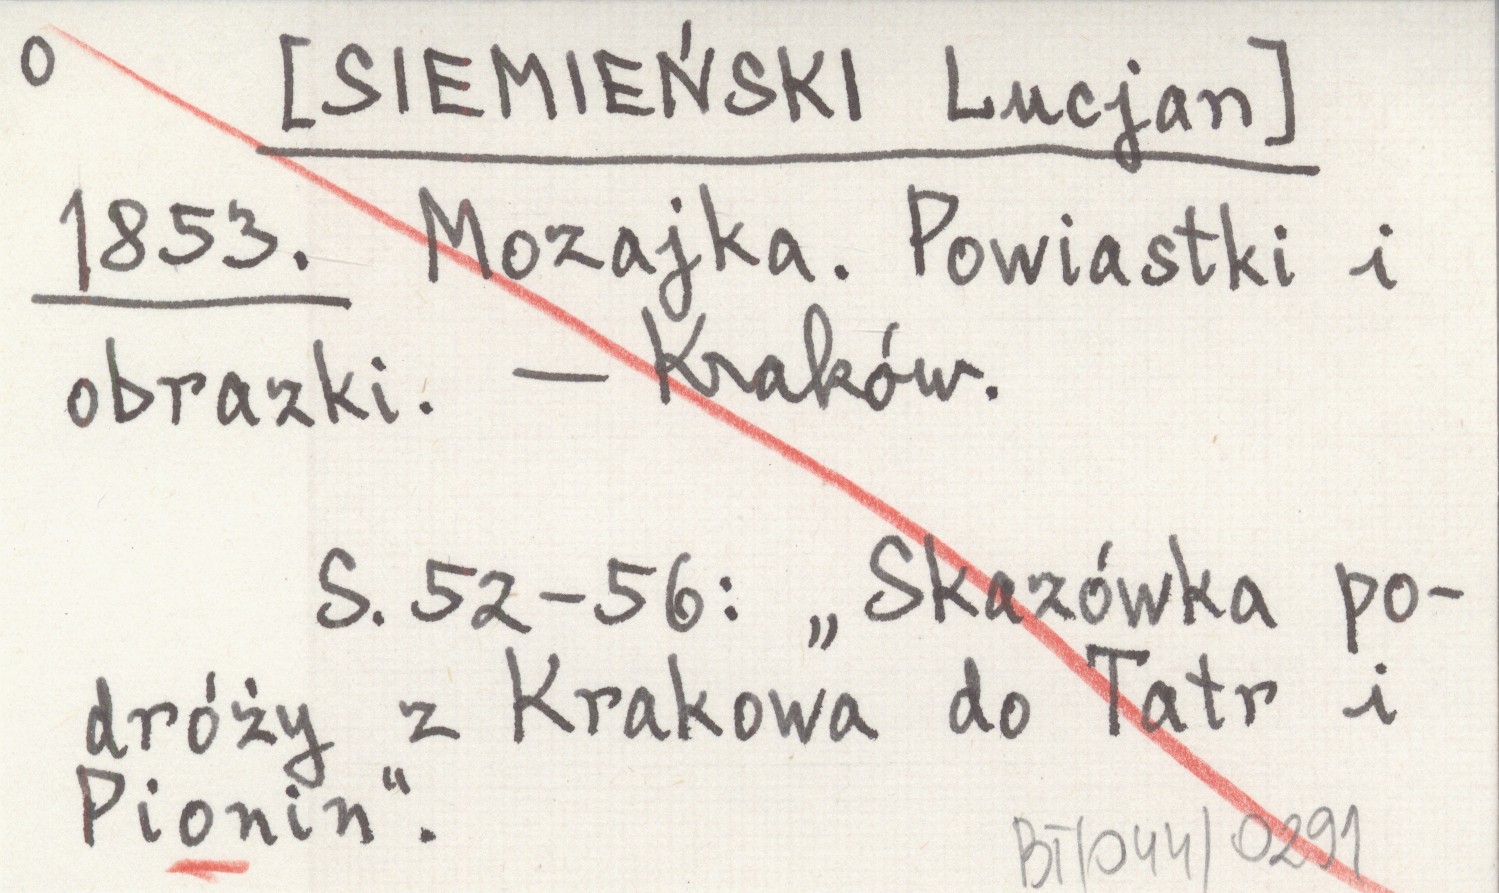 o [SIEMIEŃSKI Lucjan]
1853. Mozajka. Powiastki i
obrazki. — Kraków.
S. 52-56: „Skazówka po-
dróży z Krakowa do Tatr i
Pionin".
BT/044/0291